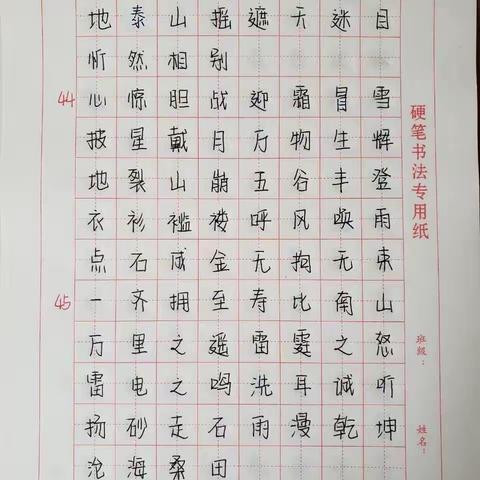 地泰山摇遮天迷目
忻然相别
44 心惊胆战迎霜冒雪
披星戴月万物生辉
地裂山崩五谷丰登
衣衫褴褛呼风唤雨
点石成金无拘无束
45 一齐拥至寿比南山
万里之遥雷霆之怒
雷电之鸣洗耳诚听
扬砂走石雨漫乾坤
沧海桑田
硬笔书法专用纸
班级：
姓名：